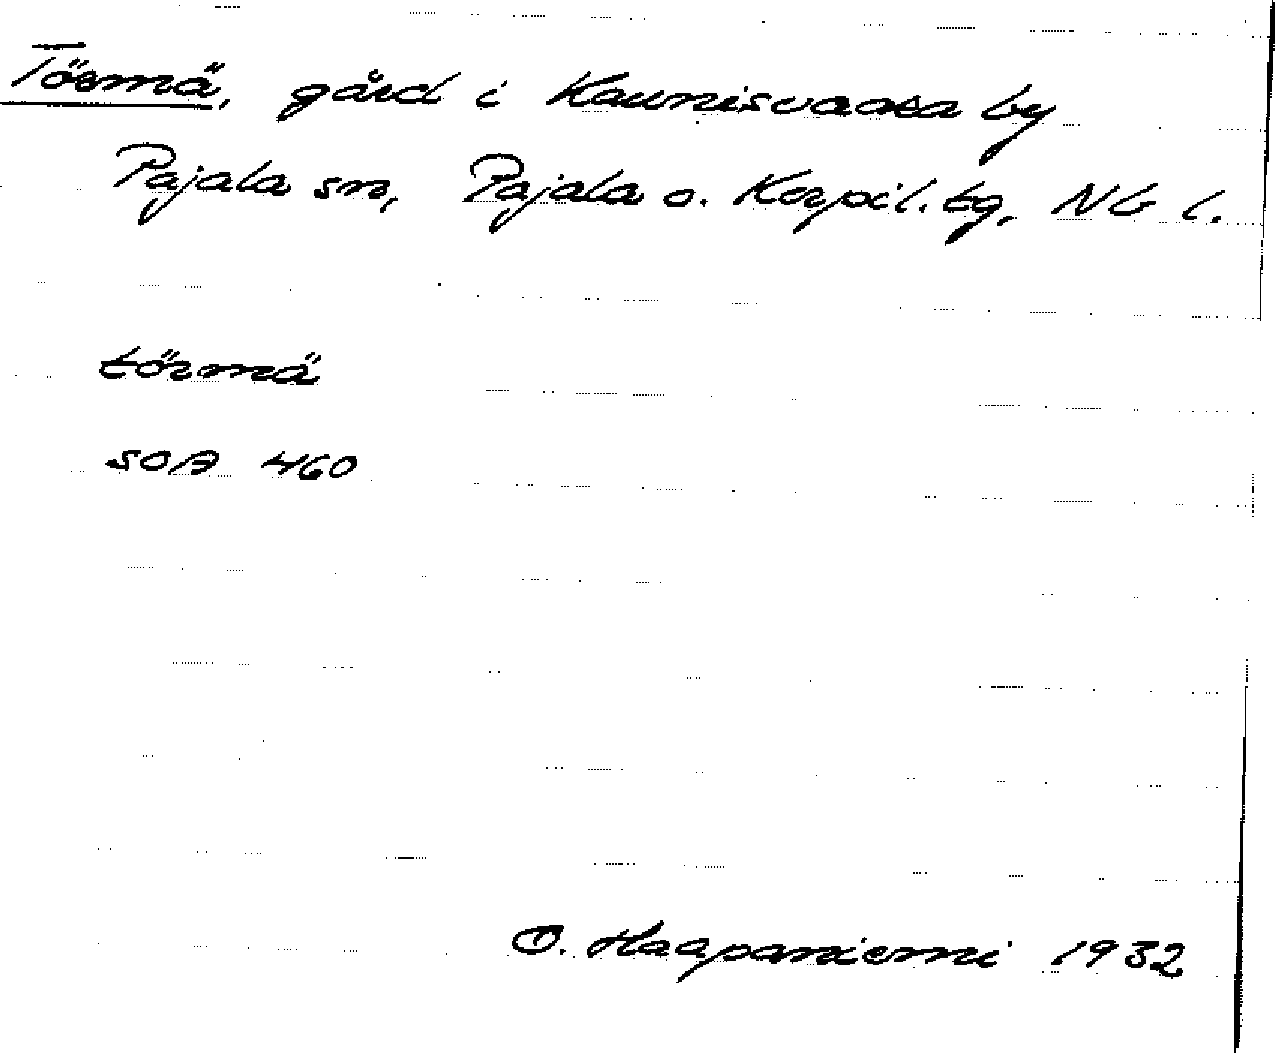 Törmä, gård i Kaunisvaara by
Pajala sn, Pajala o. Korpil. tg, NB l.
törmä
SOA 460
O. Haapaniemi 1932